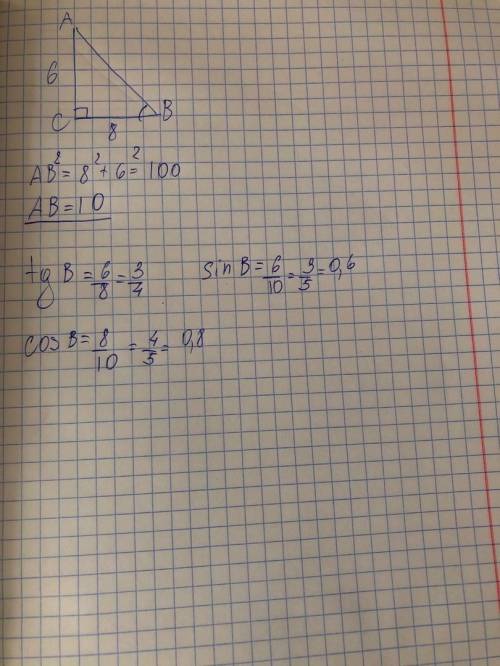 A
6
C
B
8
AB² = 8² + 6² = 100
AB = 10
tg B = 6/8 = 3/4 sin B = 6/10 = 3/5 = 0,6
cos B = 8/10 = 4/5 = 0,8